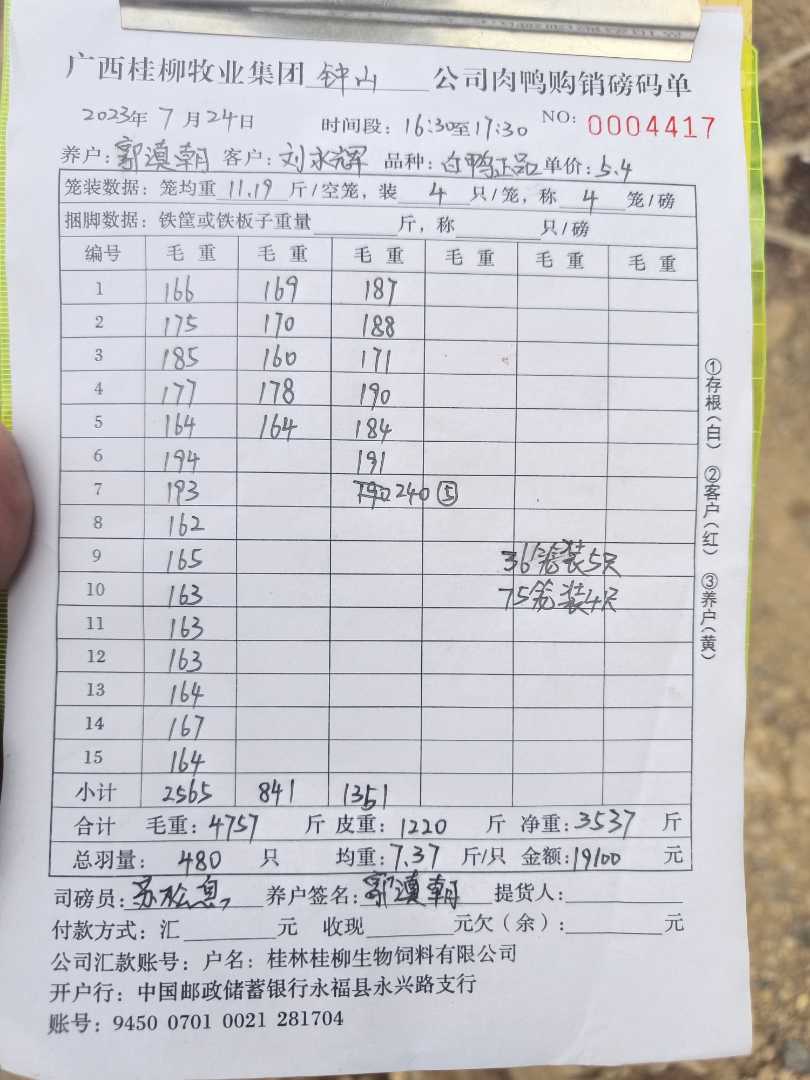 广西桂柳牧业集团 钟山 公司肉鸭购销磅码单
2023年 7 月 24 日 时间段: 16:30至17:30 NO: 0004417
养户: 郭滇朝 客户: 刘永辉 品种: 白鸭正品 单价: 5.4
笼装数据: 笼均重 11.19 斤/空笼, 装 4 只/笼, 称 4 笼/磅
捆脚数据: 铁筐或铁板子重量 斤, 称 只/磅
编号 毛 重 毛 重 毛 重 毛 重 毛 重 毛 重
1 166 169 187
2 175 170 188
3 185 160 171
4 177 178 190
5 164 164 184
6 194 191
7 193 190 240 ⑤
8 162
9 165 36笼装5只
10 163 75笼装4只
11 163
12 163
13 164
14 167
15 164
小计 2565 841 1351
合计 毛重: 4757 斤 皮重: 1220 斤 净重: 3537 斤
总羽量: 480 只 均重: 7.37 斤/只 金额: 19100 元
司磅员: 养户签名: 郭滇朝 提货人:
付款方式: 汇 元 收现 元欠(余): 元
公司汇款账号: 户名: 桂林桂柳生物饲料有限公司
开户行: 中国邮政储蓄银行永福县永兴路支行
账号: 9450 0701 0021 281704
①存根(白) ②客户(红) ③养户(黄)